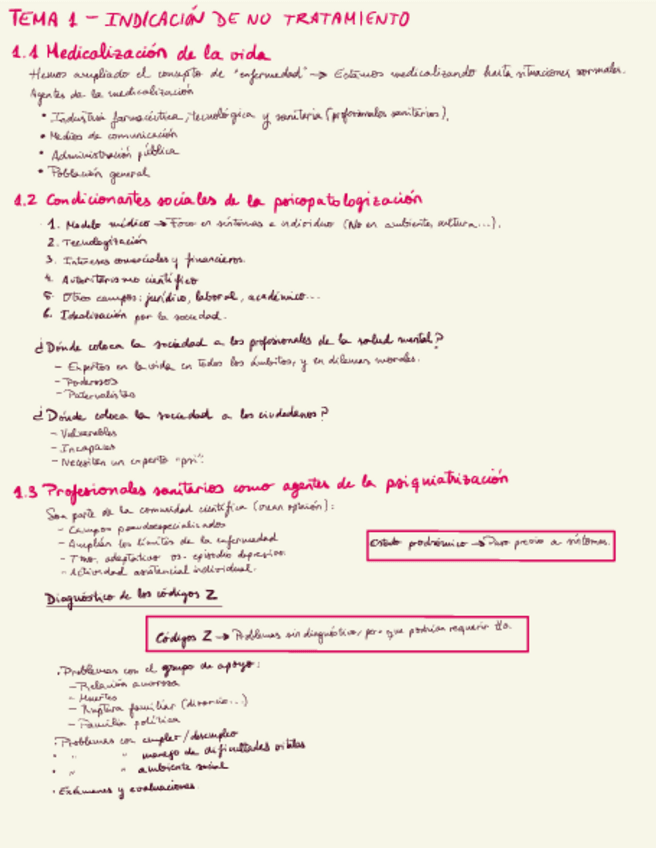 TEMA 1 - INDICACIÓN DE NO TRATAMIENTO
1.1 Medicalización de la vida
Hemos ampliado el concepto de "enfermedad" → Estamos medicalizando hasta situaciones normales.
Agentes de la medicalización
• Industria farmacéutica, tecnológica y sanitaria (profesionales sanitarios),
• Medios de comunicación
• Administración pública
• Población general
1.2 Condicionantes sociales de la psicopatologización
1. Modelo médico → Foco en síntomas e individuo (No en ambiente, cultura...),
2. Tecnologización
3. Intereses comerciales y financieros.
4. Autoritarismo científico
5. Otros campos: jurídico, laboral, académico...
6. Idealización por la sociedad.
¿Dónde coloca la sociedad a los profesionales de la salud mental?
- Expertos en la vida en todos los ámbitos, y en dilemas morales.
- Poderosos
- Paternalistas
¿Dónde coloca la sociedad a los ciudadanos?
- Vulnerables
- Incapaces
- Necesitan un experto "psi".
1.3 Profesionales sanitarios como agentes de la psiquiatrización
Son parte de la comunidad científica (crean opinión):
- Campos pseudoespecializados
- Amplían los límites de la enfermedad
- Tno. adaptativo vs. episodio depresivo
- Actividad asistencial individual.
Estado prodrómico → Puro previo a síntomas.
Diagnóstico de los códigos Z
Códigos Z → Problemas sin diagnóstico, pero que podrían requerir tto.
• Problemas con el grupo de apoyo:
- Relación amorosa
- Muertes
- Ruptura familiar (divorcio...)
- Familia política
• Problemas con empleo/desempleo
• " " manejo de dificultades vitales
• " " ambiente social
• Exámenes y evaluaciones.